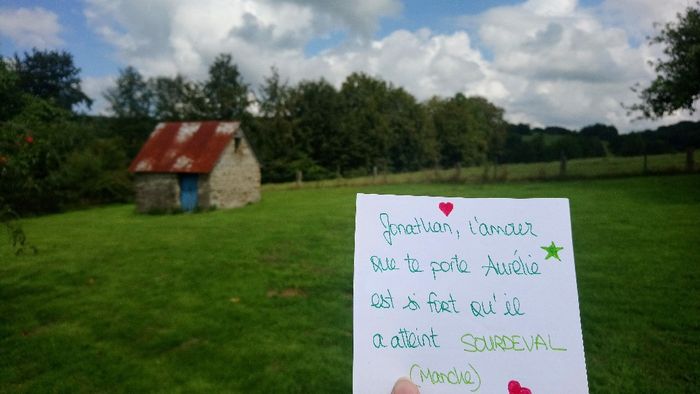 Jonathan, l'amour
que te porte Aurélie
est si fort qu'il
a atteint SOURDEVAL
(Manche)